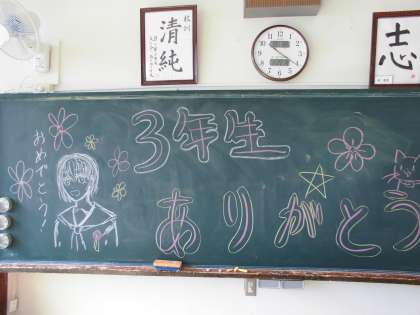 校訓
清純
志
おめでとう
3年生
ありがとう